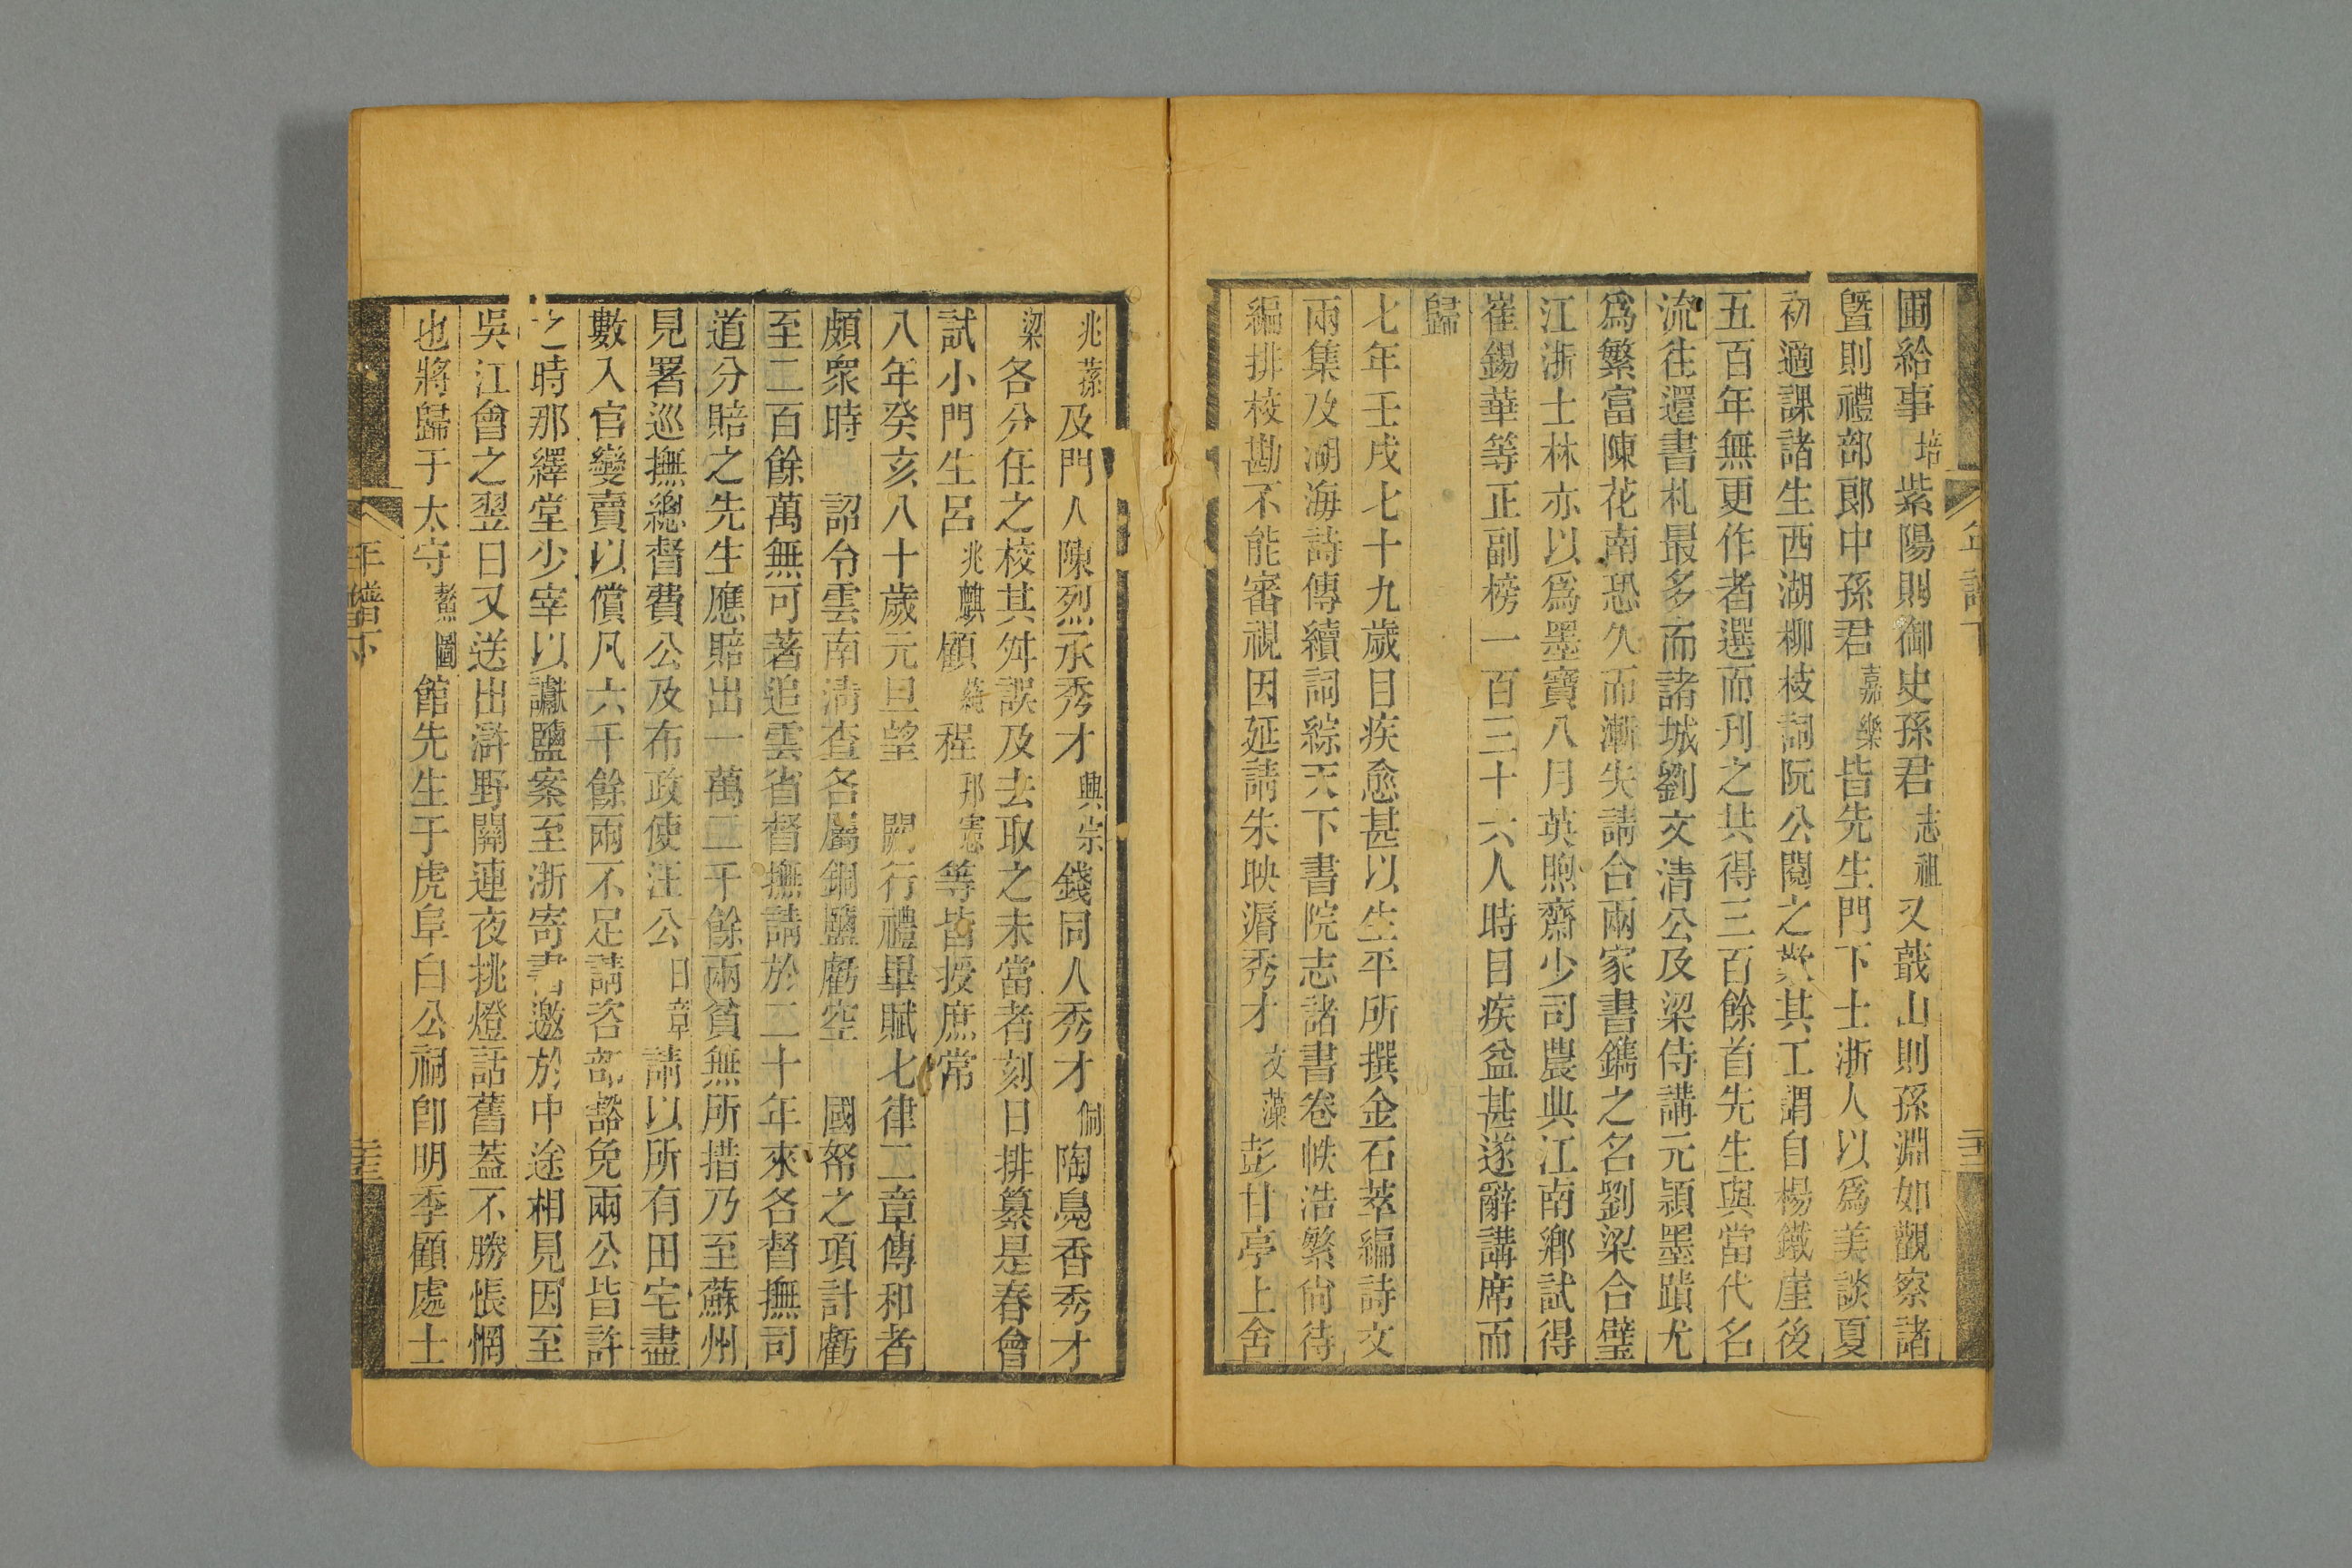 圃給事培紫陽則御史孫君志祖又蕺山則孫淵如觀察諸
曁則禮部郎中孫君嘉樂皆先生門下士浙人以爲美談夏
初適課諸生西湖柳枝詞阮公閱之歎其工謂自楊鐵崖後
五百年無更作者選而刊之共得三百餘首先生與當代名
流往還書札最多而諸城劉文清公及梁侍講元頴墨蹟尤
爲繁富陳花南恐久而漸失請合兩家書鐫之名劉梁合璧
江浙士林亦以爲墨寶八月英煦齋少司農典江南鄉試得
崔錫華等正副榜一百三十六人時目疾益甚遂辭講席而
歸
七年壬戌七十九歲目疾愈甚以生平所撰金石萃編詩文
兩集及湖海詩傳續詞綜天下書院志諸書卷帙浩繁尙待
編排校勘不能審視因延請朱映漘秀才文藻彭甘亭上舍
兆蓀及門人陳烈承秀才興宗錢同人秀才侗陶鳧香秀才
梁各分任之校其舛誤及去取之未當者刻日排纂是春會
試小門生呂兆麒顧蒓程邦憲等皆授庶常
八年癸亥八十歲元旦望闕行禮畢賦七律二章傳和者
頗衆時詔令雲南淸查各屬銅鹽虧空國帑之項計虧
至二百餘萬無可著追雲省督撫請於二十年來各督撫司
道分賠之先生應賠出一萬三千餘兩貧無所措乃至蘇州
見署巡撫總督費公及布政使汪公日章請以所有田宅盡
數入官變賣以償凡六千餘兩不足請咨部豁免兩公皆許
之時那繹堂少宰以讞鹽案至浙寄書邀於中途相見因至
吳江會之翌日又送出滸野關連夜挑燈話舊蓋不勝悵惘
也將歸于太守鰲圖館先生于虎阜白公祠卽明季顧處士
年譜下